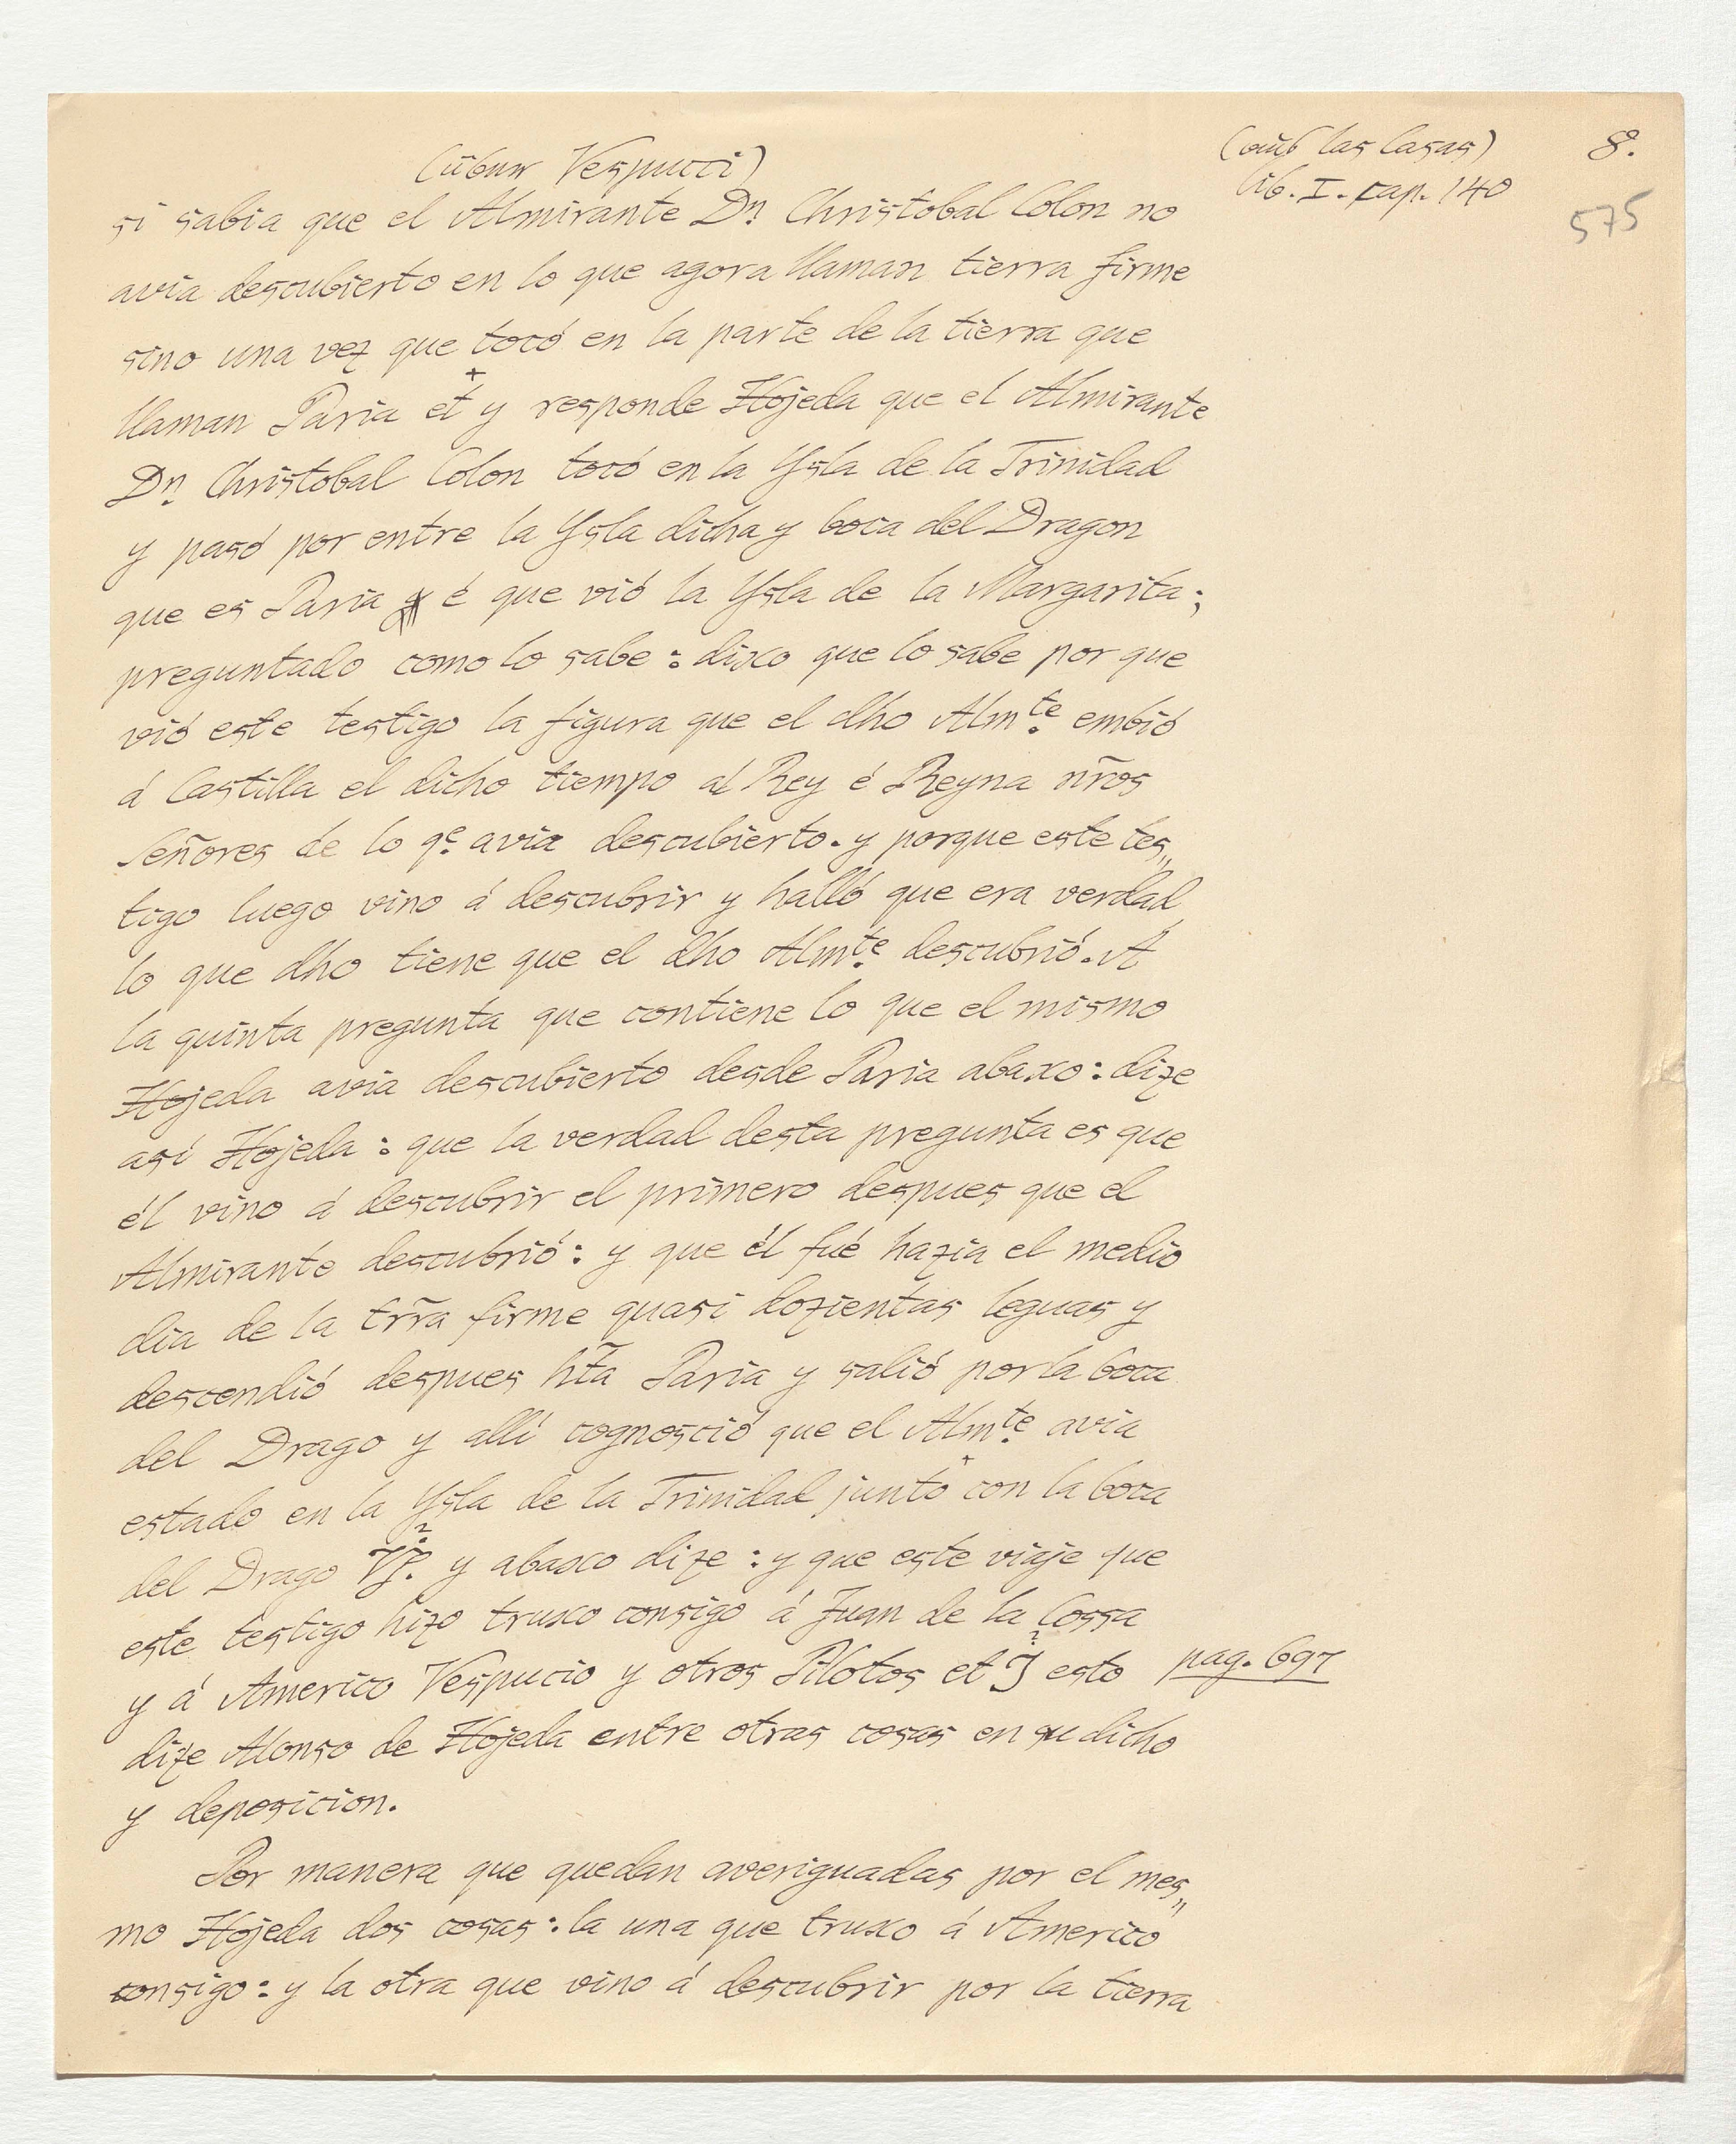 (über Vespucci)
(aus las Casas)
lib. I. cap. 140
8.
575
si sabia que el Almirante Dn. Christobal Colon no
avia descubierto en lo que agora llaman tierra firme
sino una vez que tocó en la parte de la tierra que
llaman Paria et y responde Hojeda que el Almirante
Dn. Christobal Colon tocó en la Ysla de la Trinidad
y pasó por entre la Ysla dicha y boca del Dragon
que es Paria é que vió la Ysla de la Margarita;
preguntado como lo sabe: dixo que lo sabe por que
vió este testigo la figura que el dho Almte. embió
á Castilla el dicho tiempo al Rey é Reyna nr̃os
Señores de lo qe. avia descubierto. y porque este tes„
tigo luego vino á descubrir y halló que era verdad
lo que dho tiene que el dho Almte. descubrió. A
la quinta pregunta que contiene lo que el mismo
Hojeda avia descubierto desde Paria abaxo: dize
así Hojeda: que la verdad desta pregunta es que
él vino á descubrir el primero despues que el
Almirante descubrió: y que él fué hazia el medio
dia de la trr̃a firme quasi dozientas leguas y
descendió despues ht̃a Paria y salió por la boca
del Drago y allí cognosció que el Almte. avia
estado en la Ysla de la Trinidad junto con la boca
del Drago y abaxo dize: y que este viaje que
este testigo hizo truxo consigo á Juan de la Cossa
y á Americo Vespucio y otros Pilotos et esto
pag. 697
dize Alonso de Hojeda entre otras cosas en su dicho
y deposicion.
Por manera que quedan averiguadas por el mes„
mo Hojeda dos cosas: la una que truxo á Americo
consigo: y la otra que vino á descubrir por la tierra